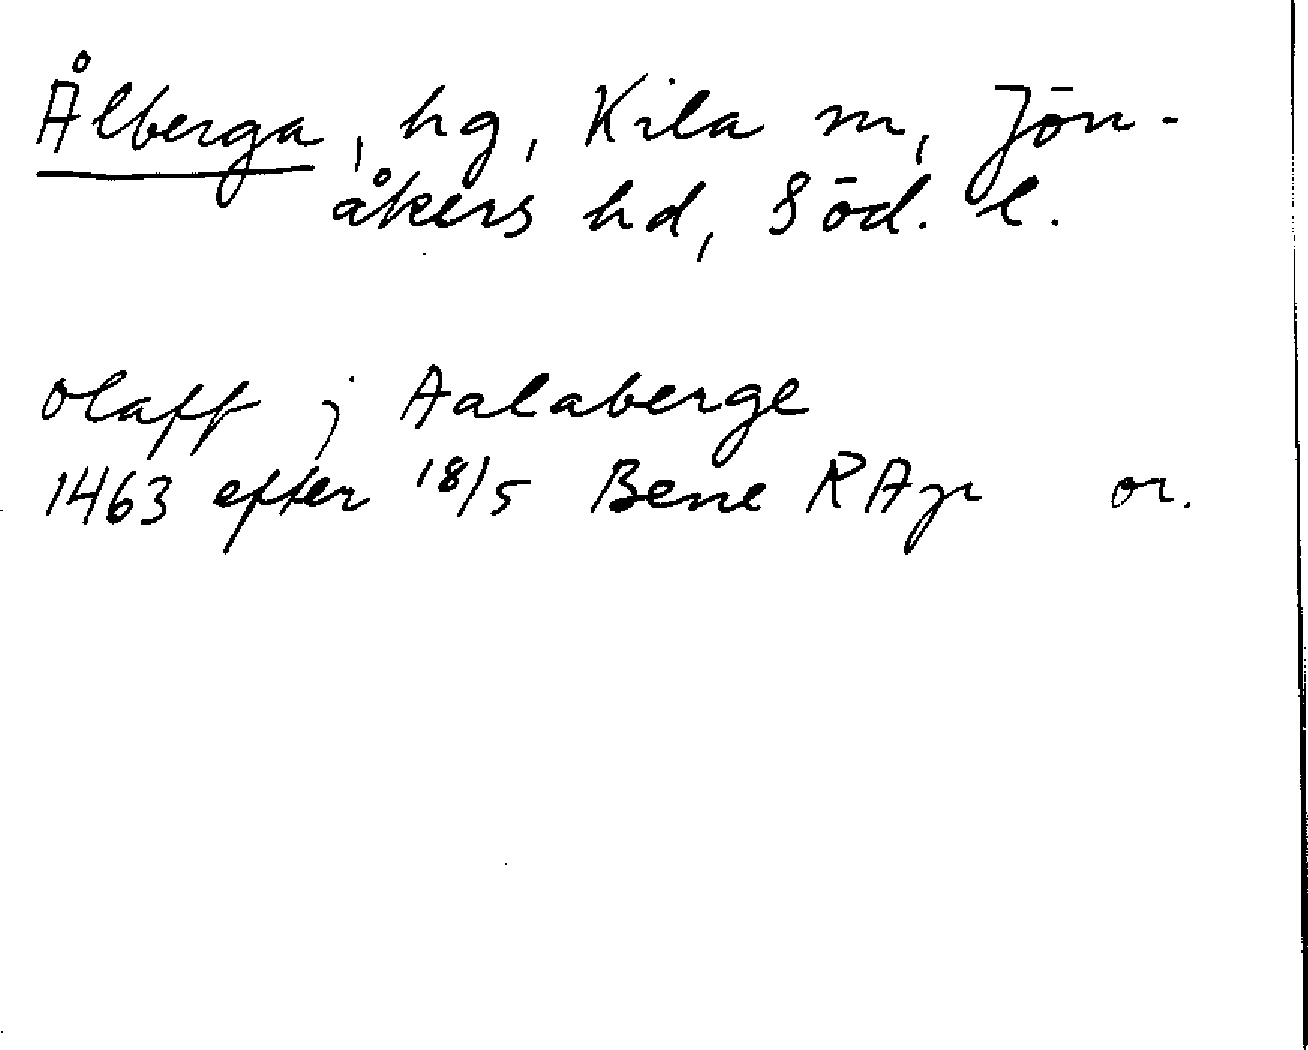 Ålberga, hg, Kila sn, Jön-
åkers hd, Söd. l.
Olaff j Aalaberge
1463 efter 18/5 Bene RAp or.